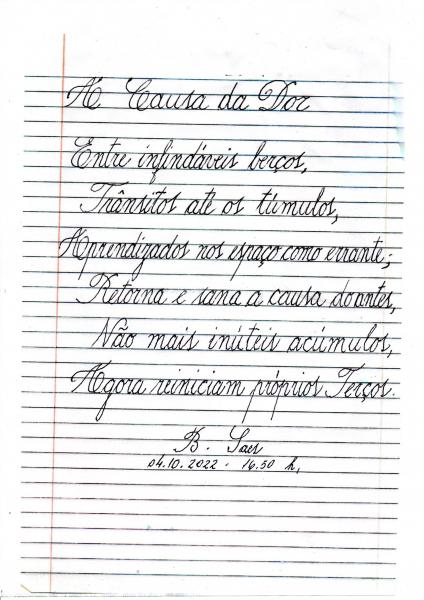 A Causa da Dor
Entre infindáveis berços,
Trânsitos até os túmulos,
Aprendizados nos espaço como errante;
Retorna e sana a causa doantes,
Não mais inúteis acúmulos,
Agora reiniciam próprios Terços.
B. Saes
04.10.2022 - 16.50 h,